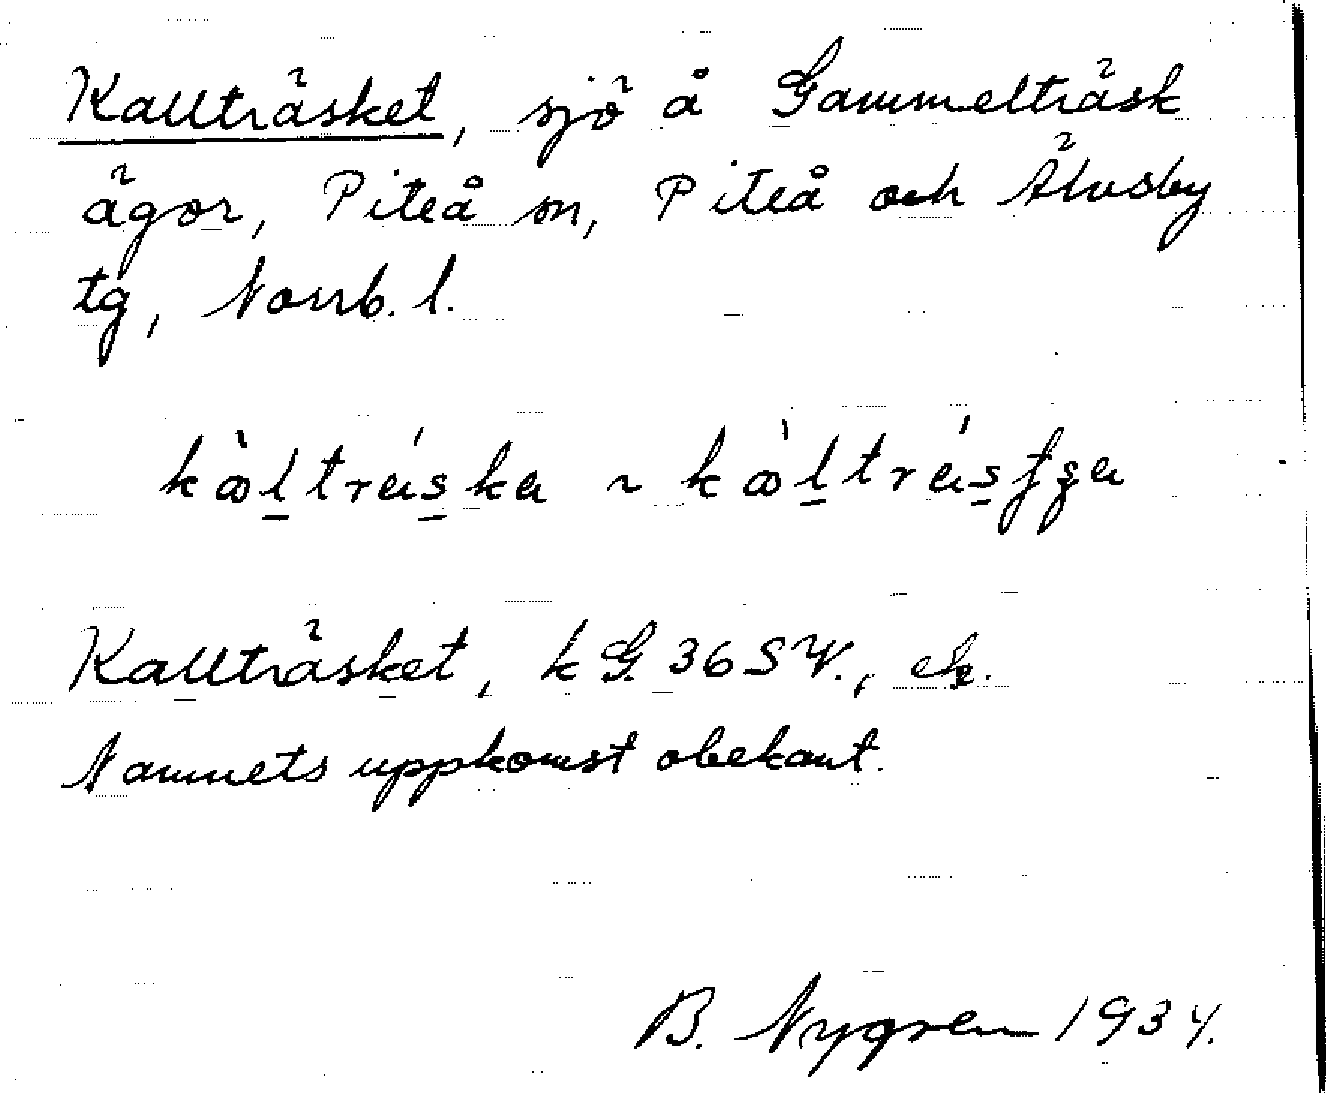 Kallträsket, sjö å Gammelträsk
ägor, Piteå sn, Piteå och Älvsby
tg, Norrb. l.
Kallträsket, kG. 36 SV., ek.
Namnets uppkomst obekant.
B. Nygren 1934.